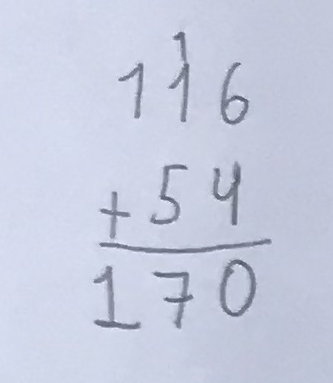 1
116
+ 54
170